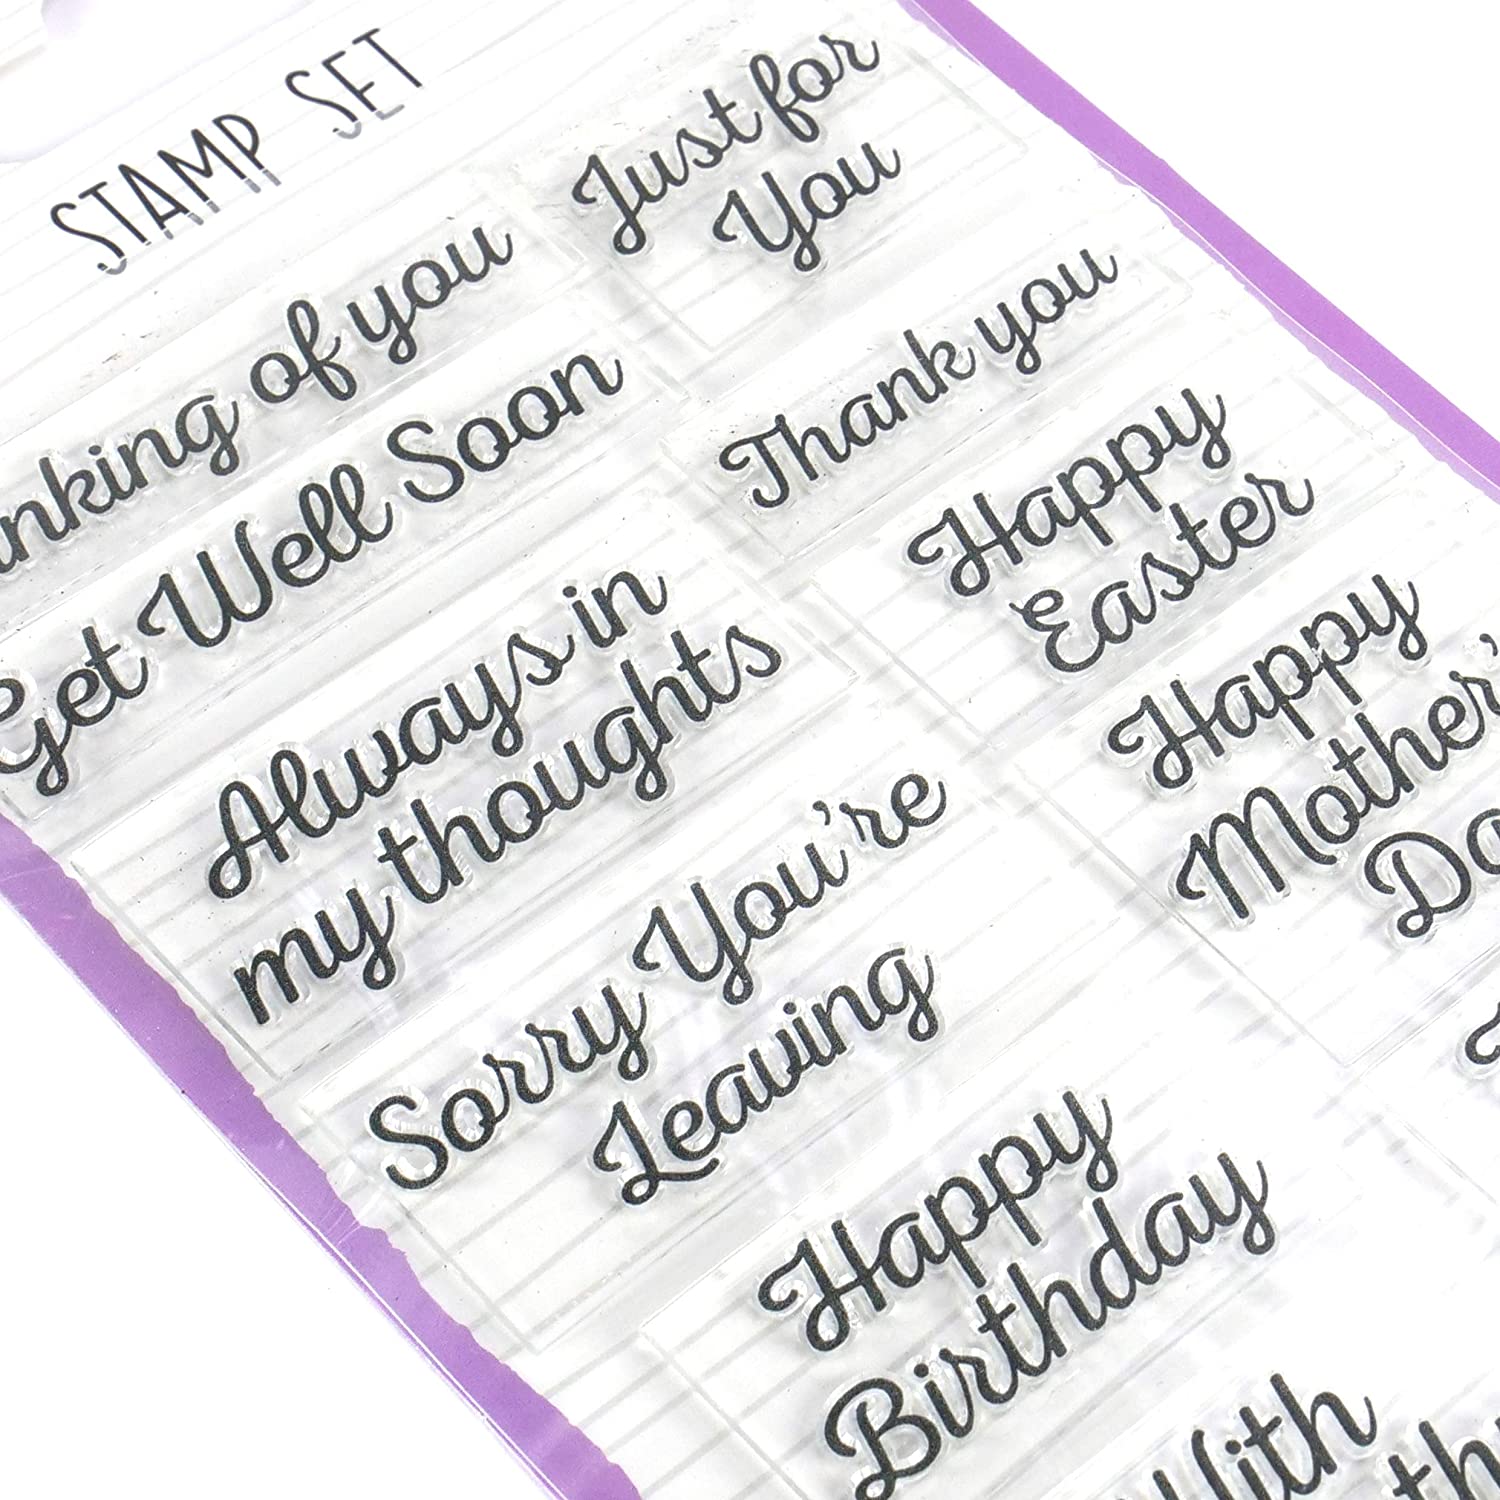 STAMP SET
nking of you
Get Well Soon
Always in
my thoughts
Sorry You're
Leaving
Happy
Birthday
Just for
You
Thank you
Happy
Easter
Happy
Mother'
Da
With